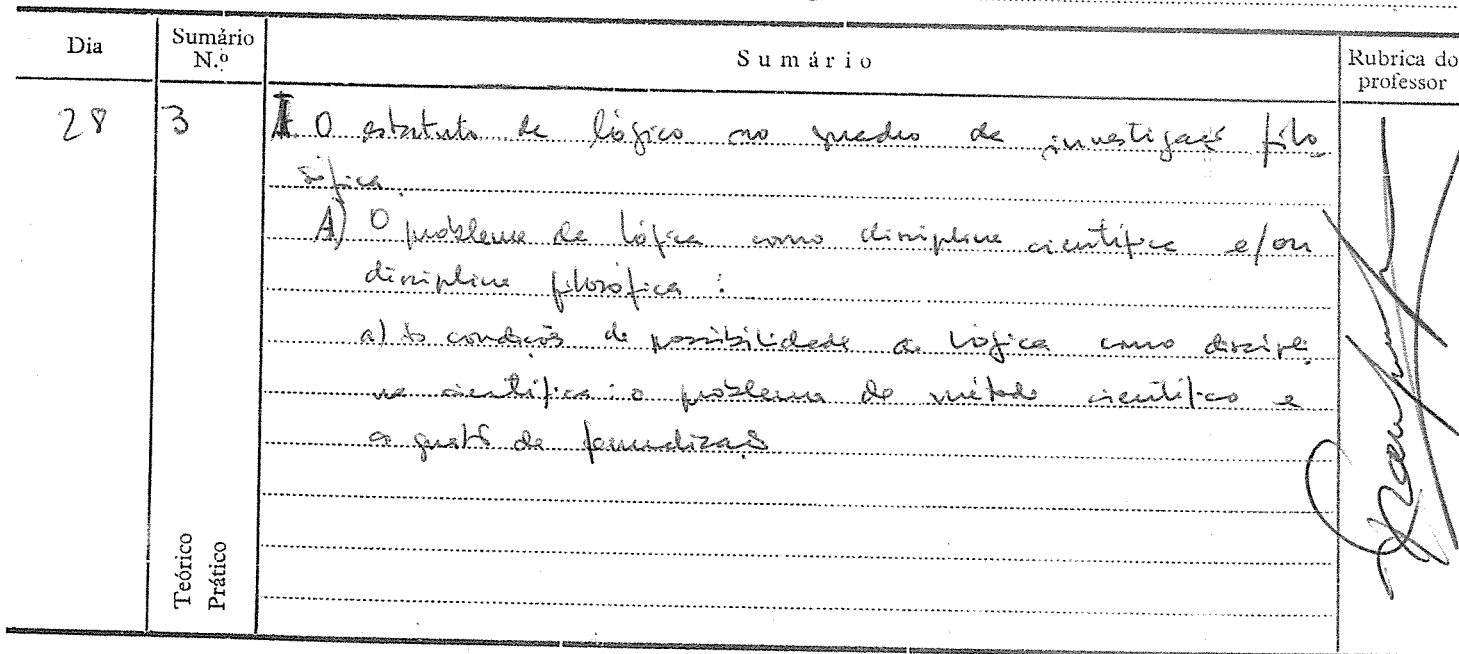 Dia
Sumário N.º
Sumário
Rubrica do professor
28
3
I. O estatuto da lógica no quadro da investigação filo
sófica.
A) O problema da lógica como disciplina científica e/ou
disciplina filosófica :
a) As condições de possibilidade da lógica como discipli
na científica : o problema do método científico e
a questão da formalização
Teórico
Prático